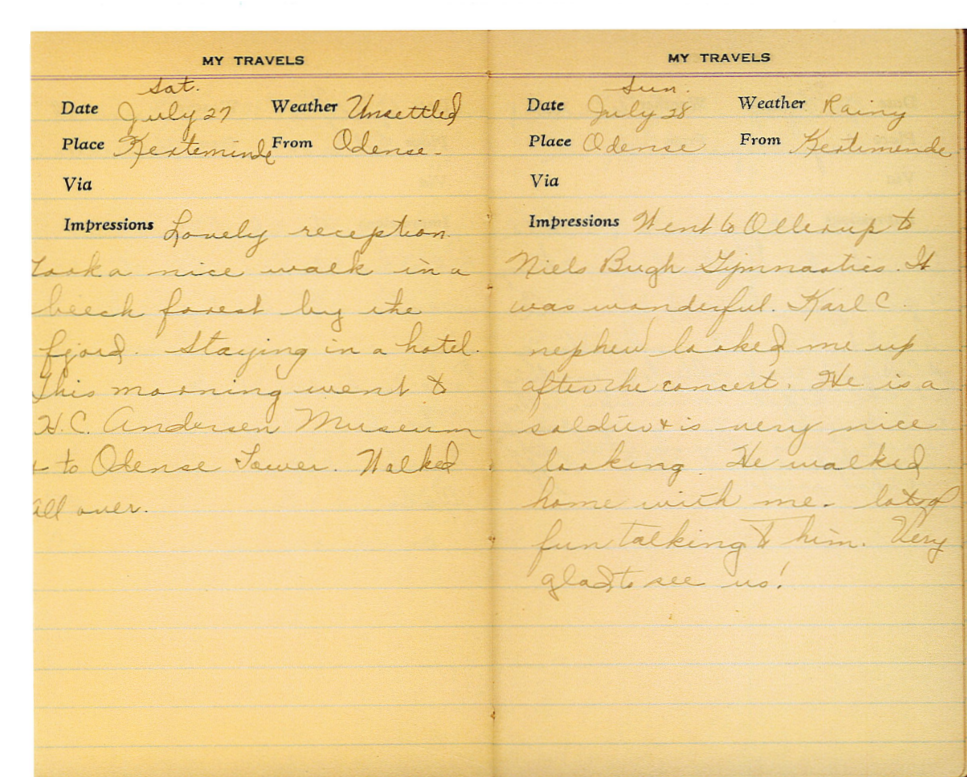 MY TRAVELS
Sat.
Date July 27 Weather Unsettled
Place Kerteminde From Odense-
Via
Impressions Lovely reception.
Took a nice walk in a
beech forest by the
fjord. Staying in a hotel.
This morning went to
H.C. Andersen Museum
& to Odense Tower. Walked
all over.
MY TRAVELS
Sun.
Date July 28 Weather Rainy
Place Odense From Kertimende
Via
Impressions Went to Ollerup to
Niels Bugh Gymnastics. It
was wonderful. Karl C.
nephew looked me up
after the concert. He is a
soldier & is very nice
looking. He walked
home with me. lots of
fun talking to him. Very
glad to see us!